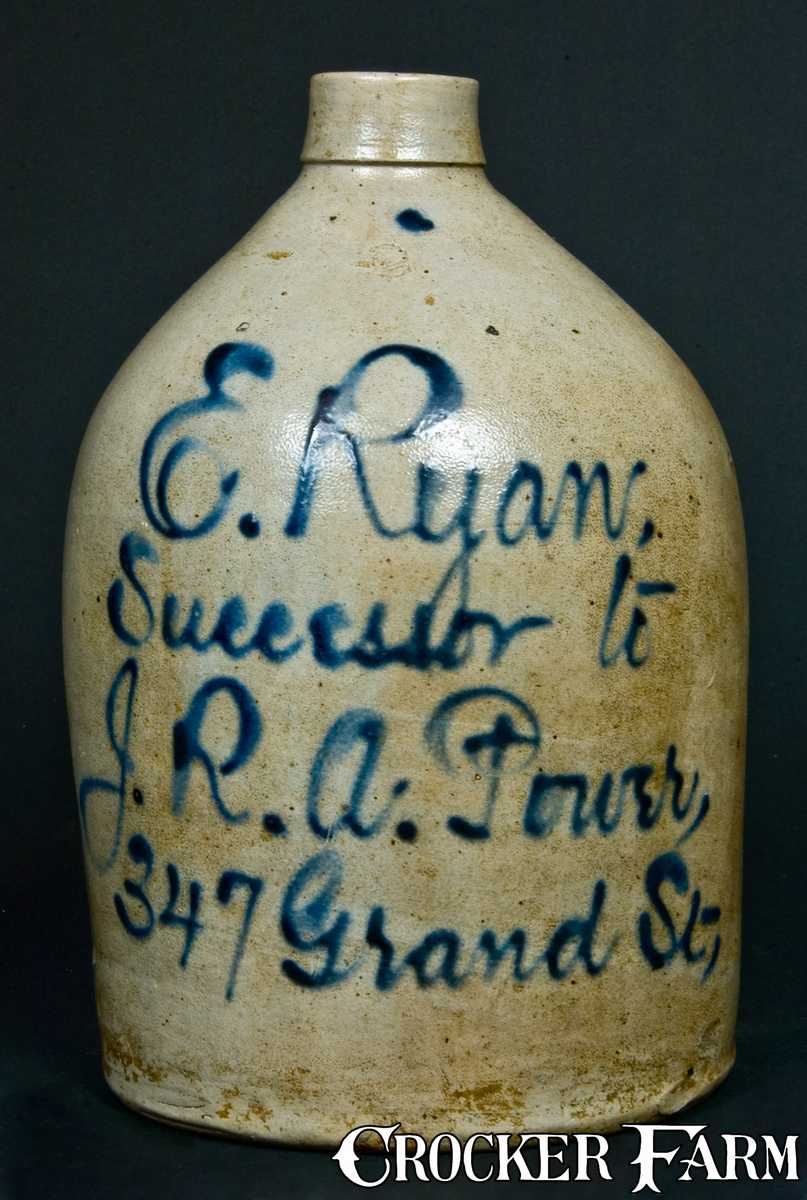 E. Ryan,
Successor to
J. R. A. Power,
347 Grand St,
CROCKER FARM